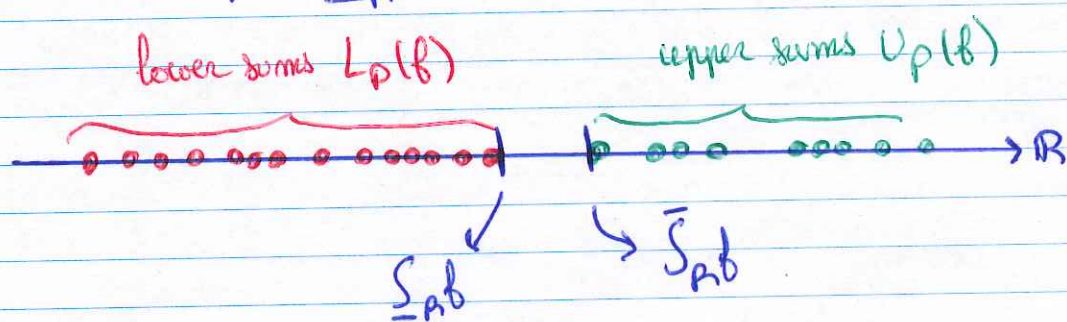 lower sums L_P(f) upper sums U_P(f)
ℝ
\underline{∫}_R f \overline{∫}_R f